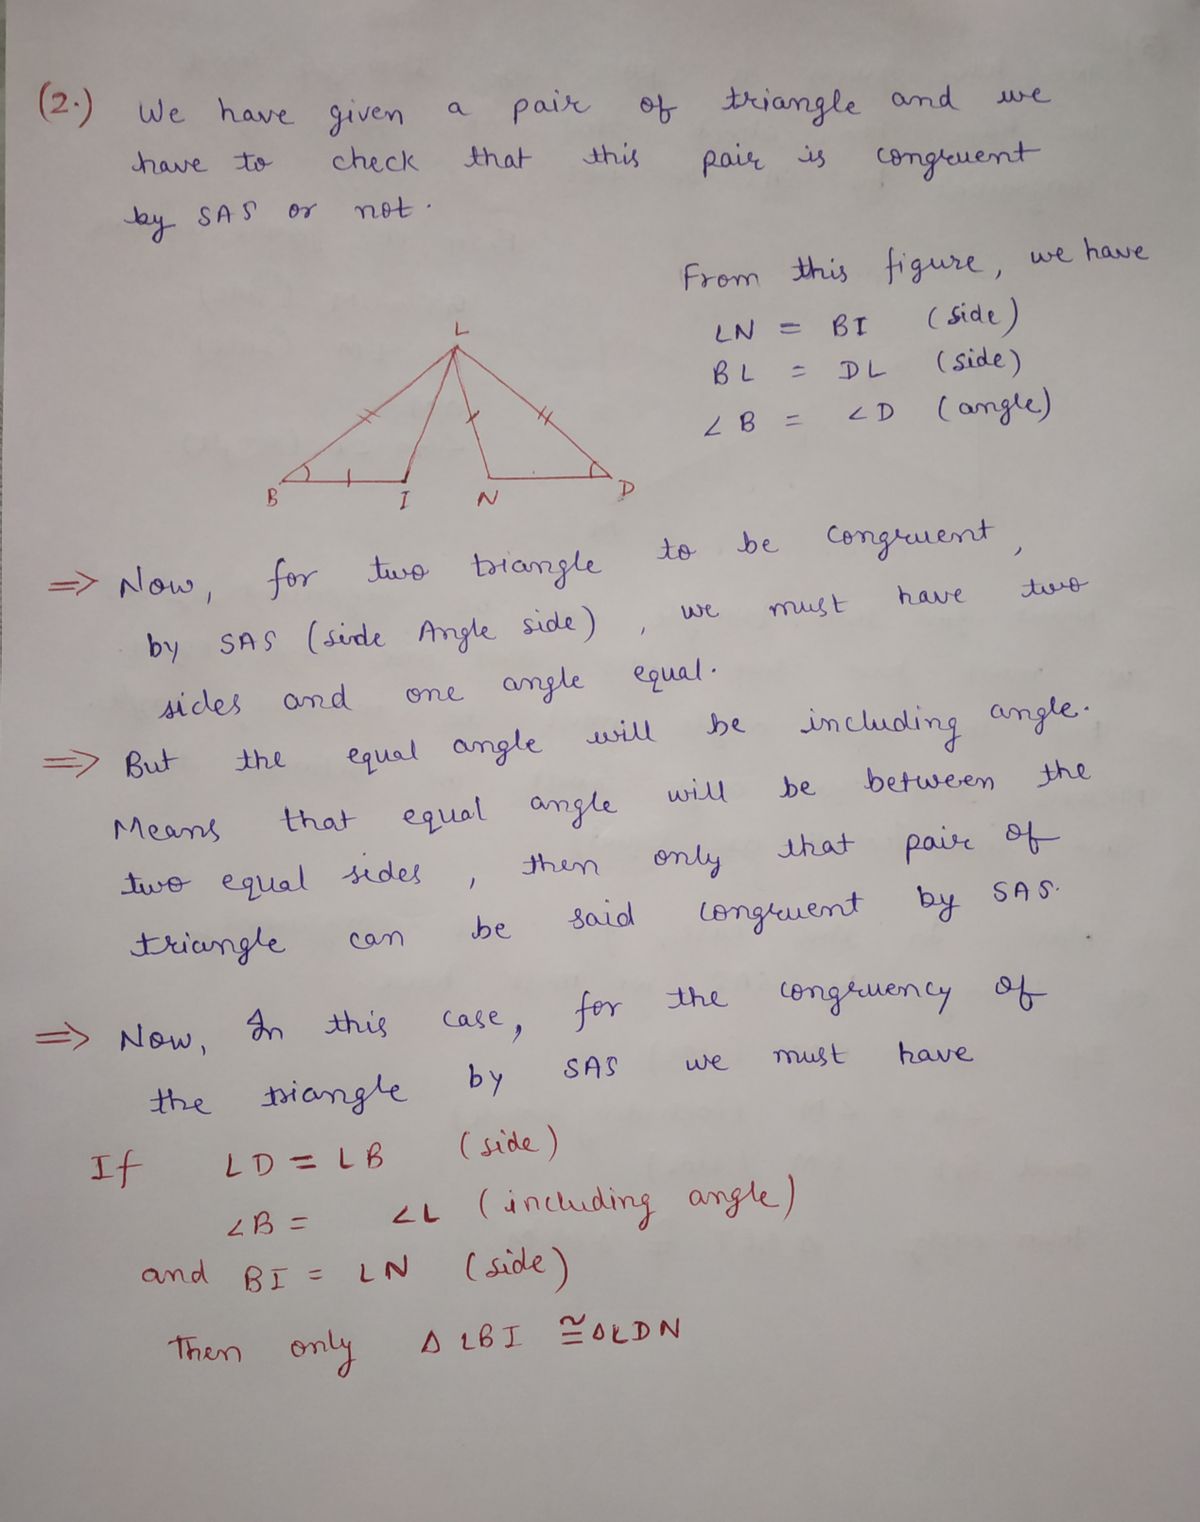 (2.) We have given a pair of triangle and we
have to check that this pair is congruent
by SAS or not.
From this figure, we have
LN = BI (side)
BL = DL (side)
∠B = ∠D (angle)
L
B
I
N
D
⇒ Now, for two triangle to be congruent,
by SAS (side Angle side), we must have two
sides and one angle equal.
⇒ But the equal angle will be including angle.
Means that equal angle will be between the
two equal sides, then only that pair of
triangle can be said congruent by SAS.
⇒ Now, In this case, for the congruency of
the triangle by SAS we must have
If LD = LB (side)
∠B = ∠L (including angle)
and BI = LN (side)
Then only Δ LBI ≅ Δ LDN